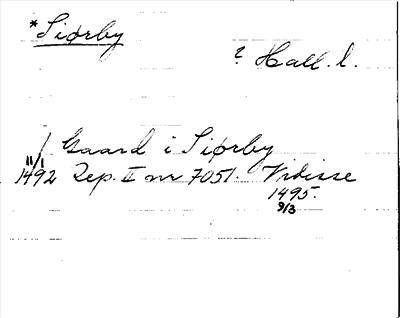 *Siørby
? Hall. l.
1 Gaard i Siørby
11/1 1492 Rep. II nr 7051. Vidisse
1495.
9/3